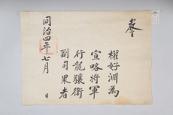 權好淵為
宣略將軍
行龍驤衛
副司果者
同治四年七月 日